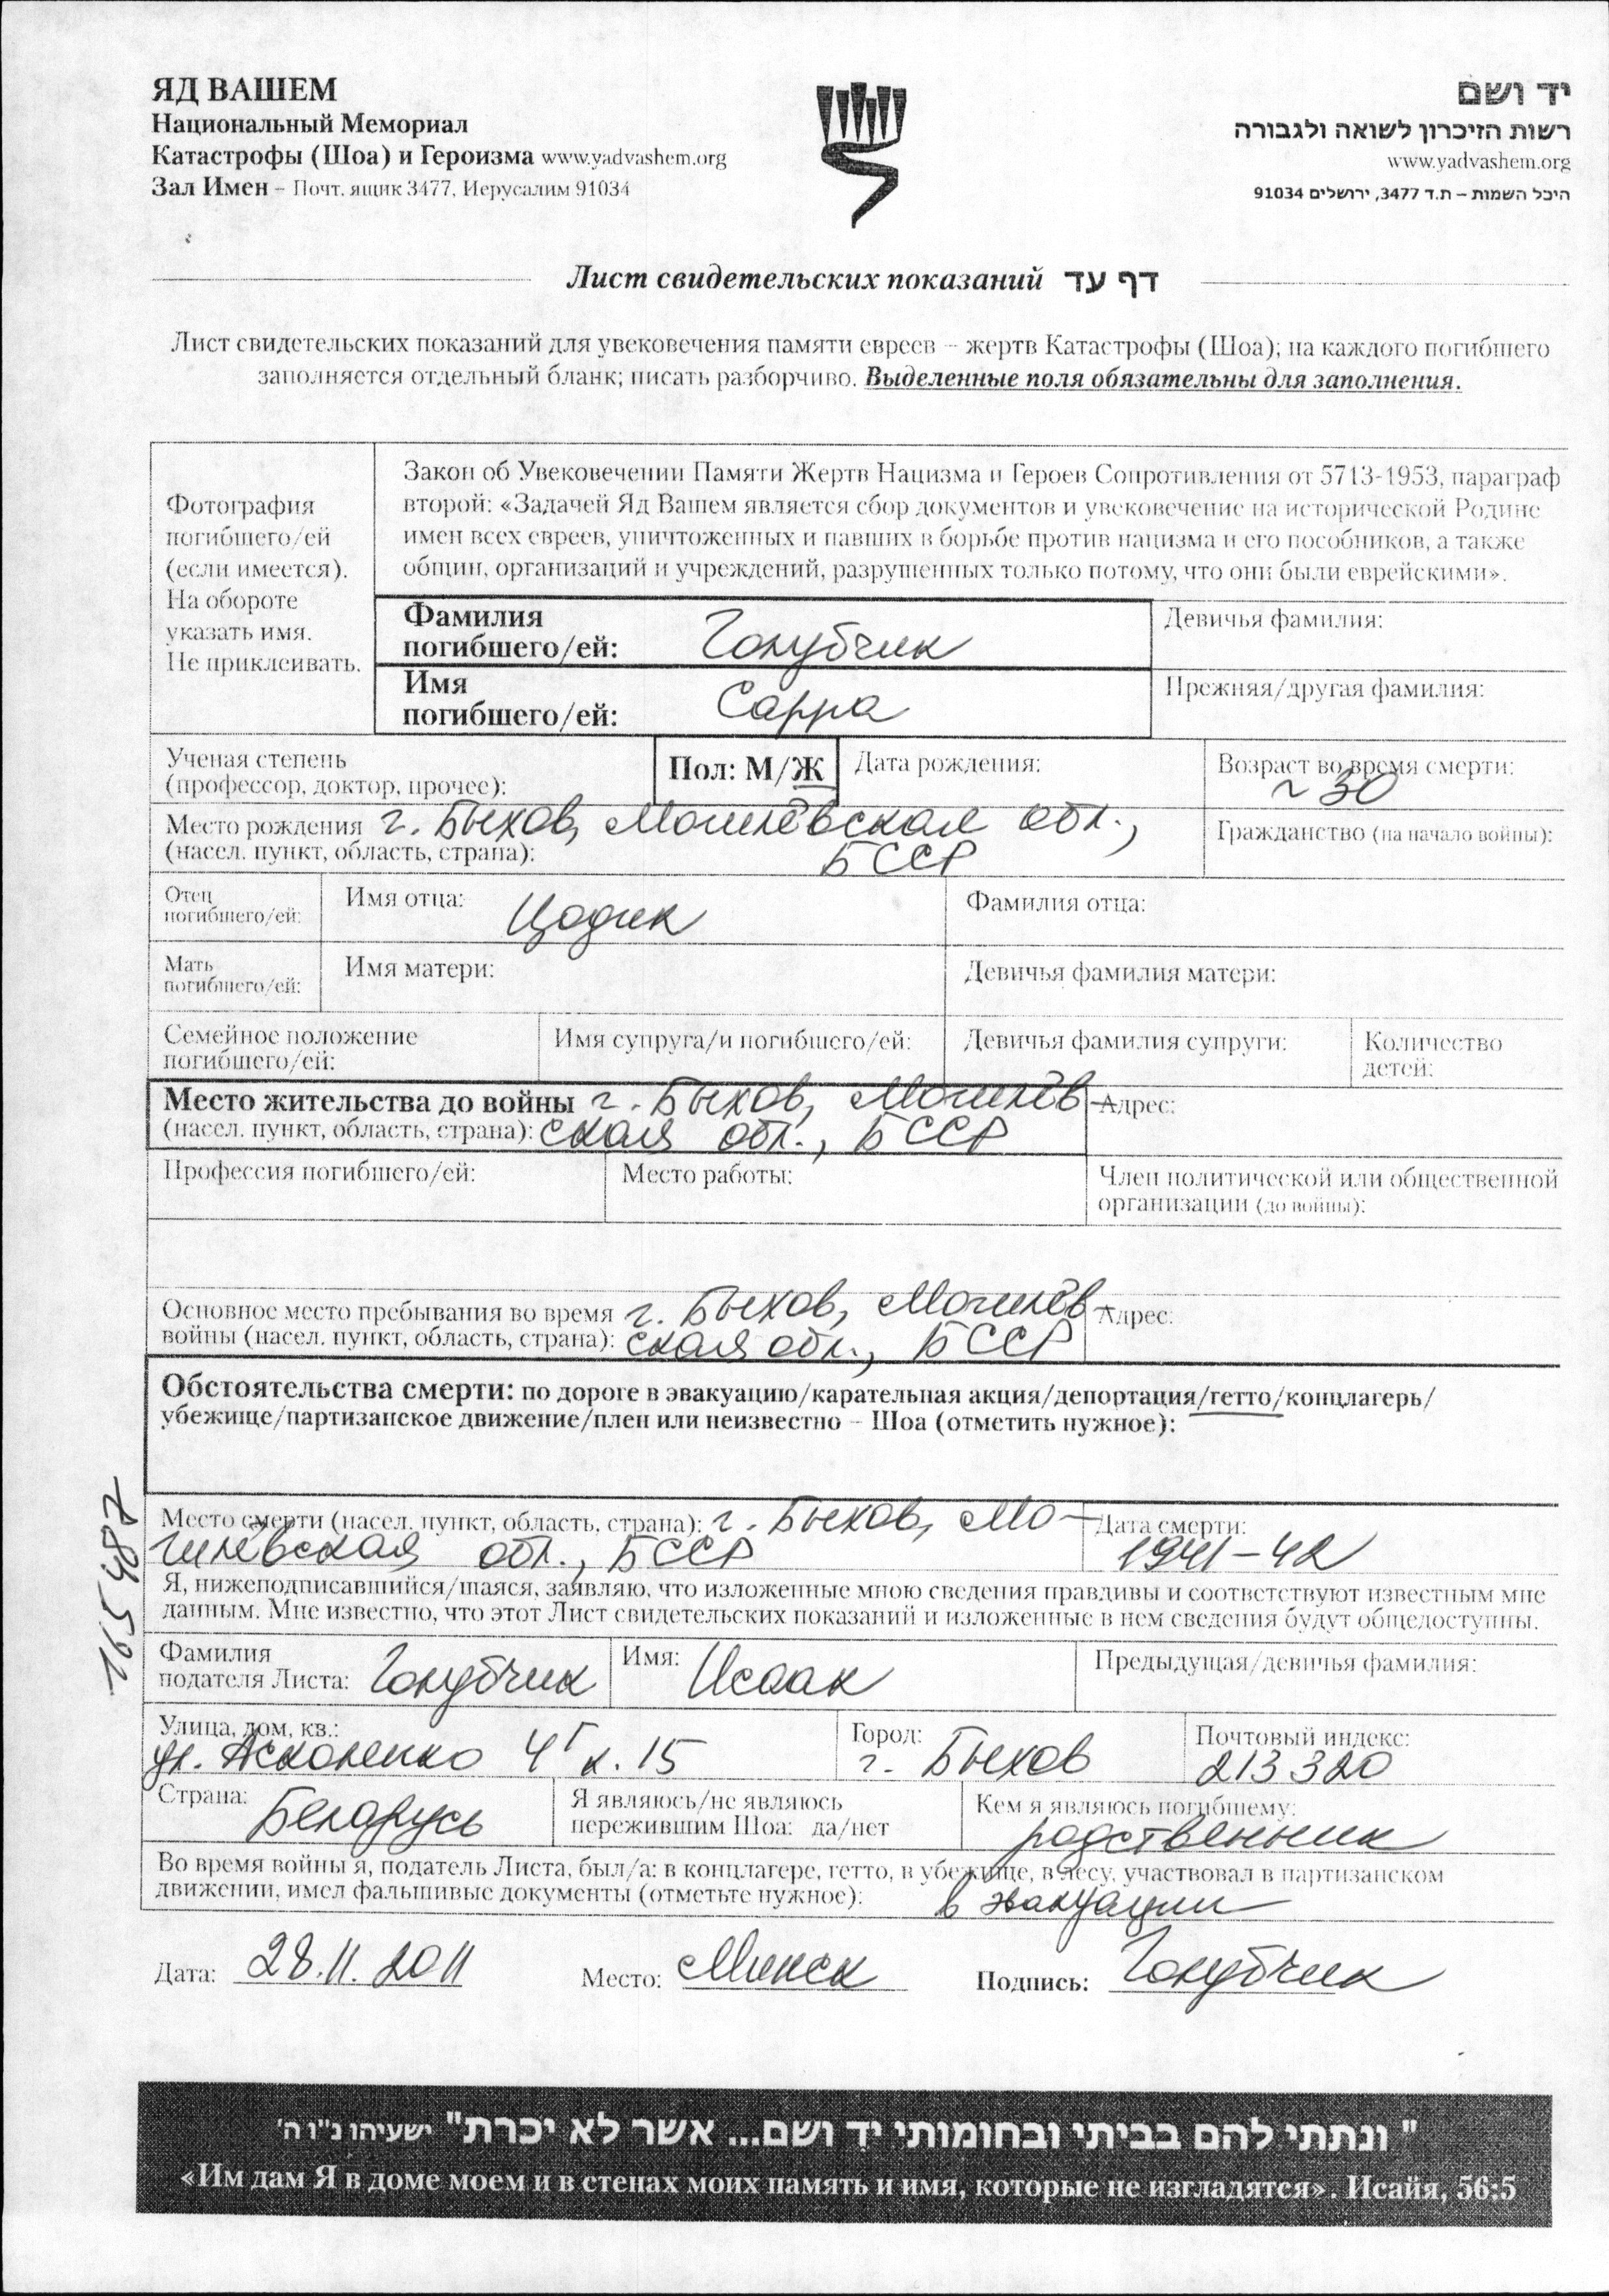 ЯД ВАШЕМ
Национальный Мемориал
Катастрофы (Шоа) и Героизма www.yadvashem.org
Зал Имен – Почт. ящик 3477, Иерусалим 91034
יד ושם
רשות הזיכרון לשואה ולגבורה
www.yadvashem.org
היכל השמות – ת.ד 3477, ירושלים 91034
Лист свидетельских показаний דף עד
Лист свидетельских показаний для увековечения памяти евреев – жертв Катастрофы (Шоа); на каждого погибшего
заполняется отдельный бланк; писать разборчиво. Выделенные поля обязательны для заполнения.
Фотография
погибшего/ей
(если имеется).
На обороте
указать имя.
Не приклеивать.
Закон об Увековечении Памяти Жертв Нацизма и Героев Сопротивления от 5713-1953, параграф
второй: «Задачей Яд Вашем является сбор документов и увековечение на исторической Родине
имен всех евреев, уничтоженных и павших в борьбе против нацизма и его пособников, а также
общин, организаций и учреждений, разрушенных только потому, что они были еврейскими».
Фамилия
погибшего/ей: Голубчик
Девичья фамилия:
Имя
погибшего/ей: Сарра
Прежняя/другая фамилия:
Ученая степень
(профессор, доктор, прочее):
Пол: М/Ж
Дата рождения:
Возраст во время смерти:
~ 30
Место рождения г. Быхов, Могилёвская обл.,
(насел. пункт, область, страна): БССР
Гражданство (на начало войны):
Отец
погибшего/ей:
Имя отца: Цодик
Фамилия отца:
Мать
погибшего/ей:
Имя матери:
Девичья фамилия матери:
Семейное положение
погибшего/ей:
Имя супруга/и погибшего/ей:
Девичья фамилия супруги:
Количество
детей:
Место жительства до войны г. Быхов, Могилёв-
(насел. пункт, область, страна): ская обл., БССР
Адрес:
Профессия погибшего/ей:
Место работы:
Член политической или общественной
организации (до войны):
Основное место пребывания во время г. Быхов, Могилёв-
войны (насел. пункт, область, страна): ская обл., БССР
Адрес:
Обстоятельства смерти: по дороге в эвакуацию/карательная акция/депортация/гетто/концлагерь/
убежище/партизанское движение/плен или неизвестно – Шоа (отметить нужное):
Место смерти (насел. пункт, область, страна): г. Быхов, Мо-
гилёвская обл., БССР
Дата смерти:
1941-42
165487
Я, нижеподписавшийся/шаяся, заявляю, что изложенные мною сведения правдивы и соответствуют известным мне
данным. Мне известно, что этот Лист свидетельских показаний и изложенные в нем сведения будут общедоступны.
Фамилия
подателя Листа: Голубчик
Имя: Исаак
Предыдущая/девичья фамилия:
Улица, дом, кв.:
ул. Асконенко 4г к. 15
Город:
г. Быхов
Почтовый индекс:
213320
Страна: Беларусь
Я являюсь/не являюсь
пережившим Шоа: да/нет
Кем я являюсь погибшему:
родственник
Во время войны я, податель Листа, был/а: в концлагере, гетто, в убежище, в лесу, участвовал в партизанском
движении, имел фальшивые документы (отметьте нужное): в эвакуации
Дата: 28.11.2011 Место: Минск Подпись: Голубчик
" ונתתי להם בביתי ובחומותי יד ושם... אשר לא יכרת" ישעיהו נ"ו ה'
«Им дам Я в доме моем и в стенах моих память и имя, которые не изгладятся». Исайя, 56:5